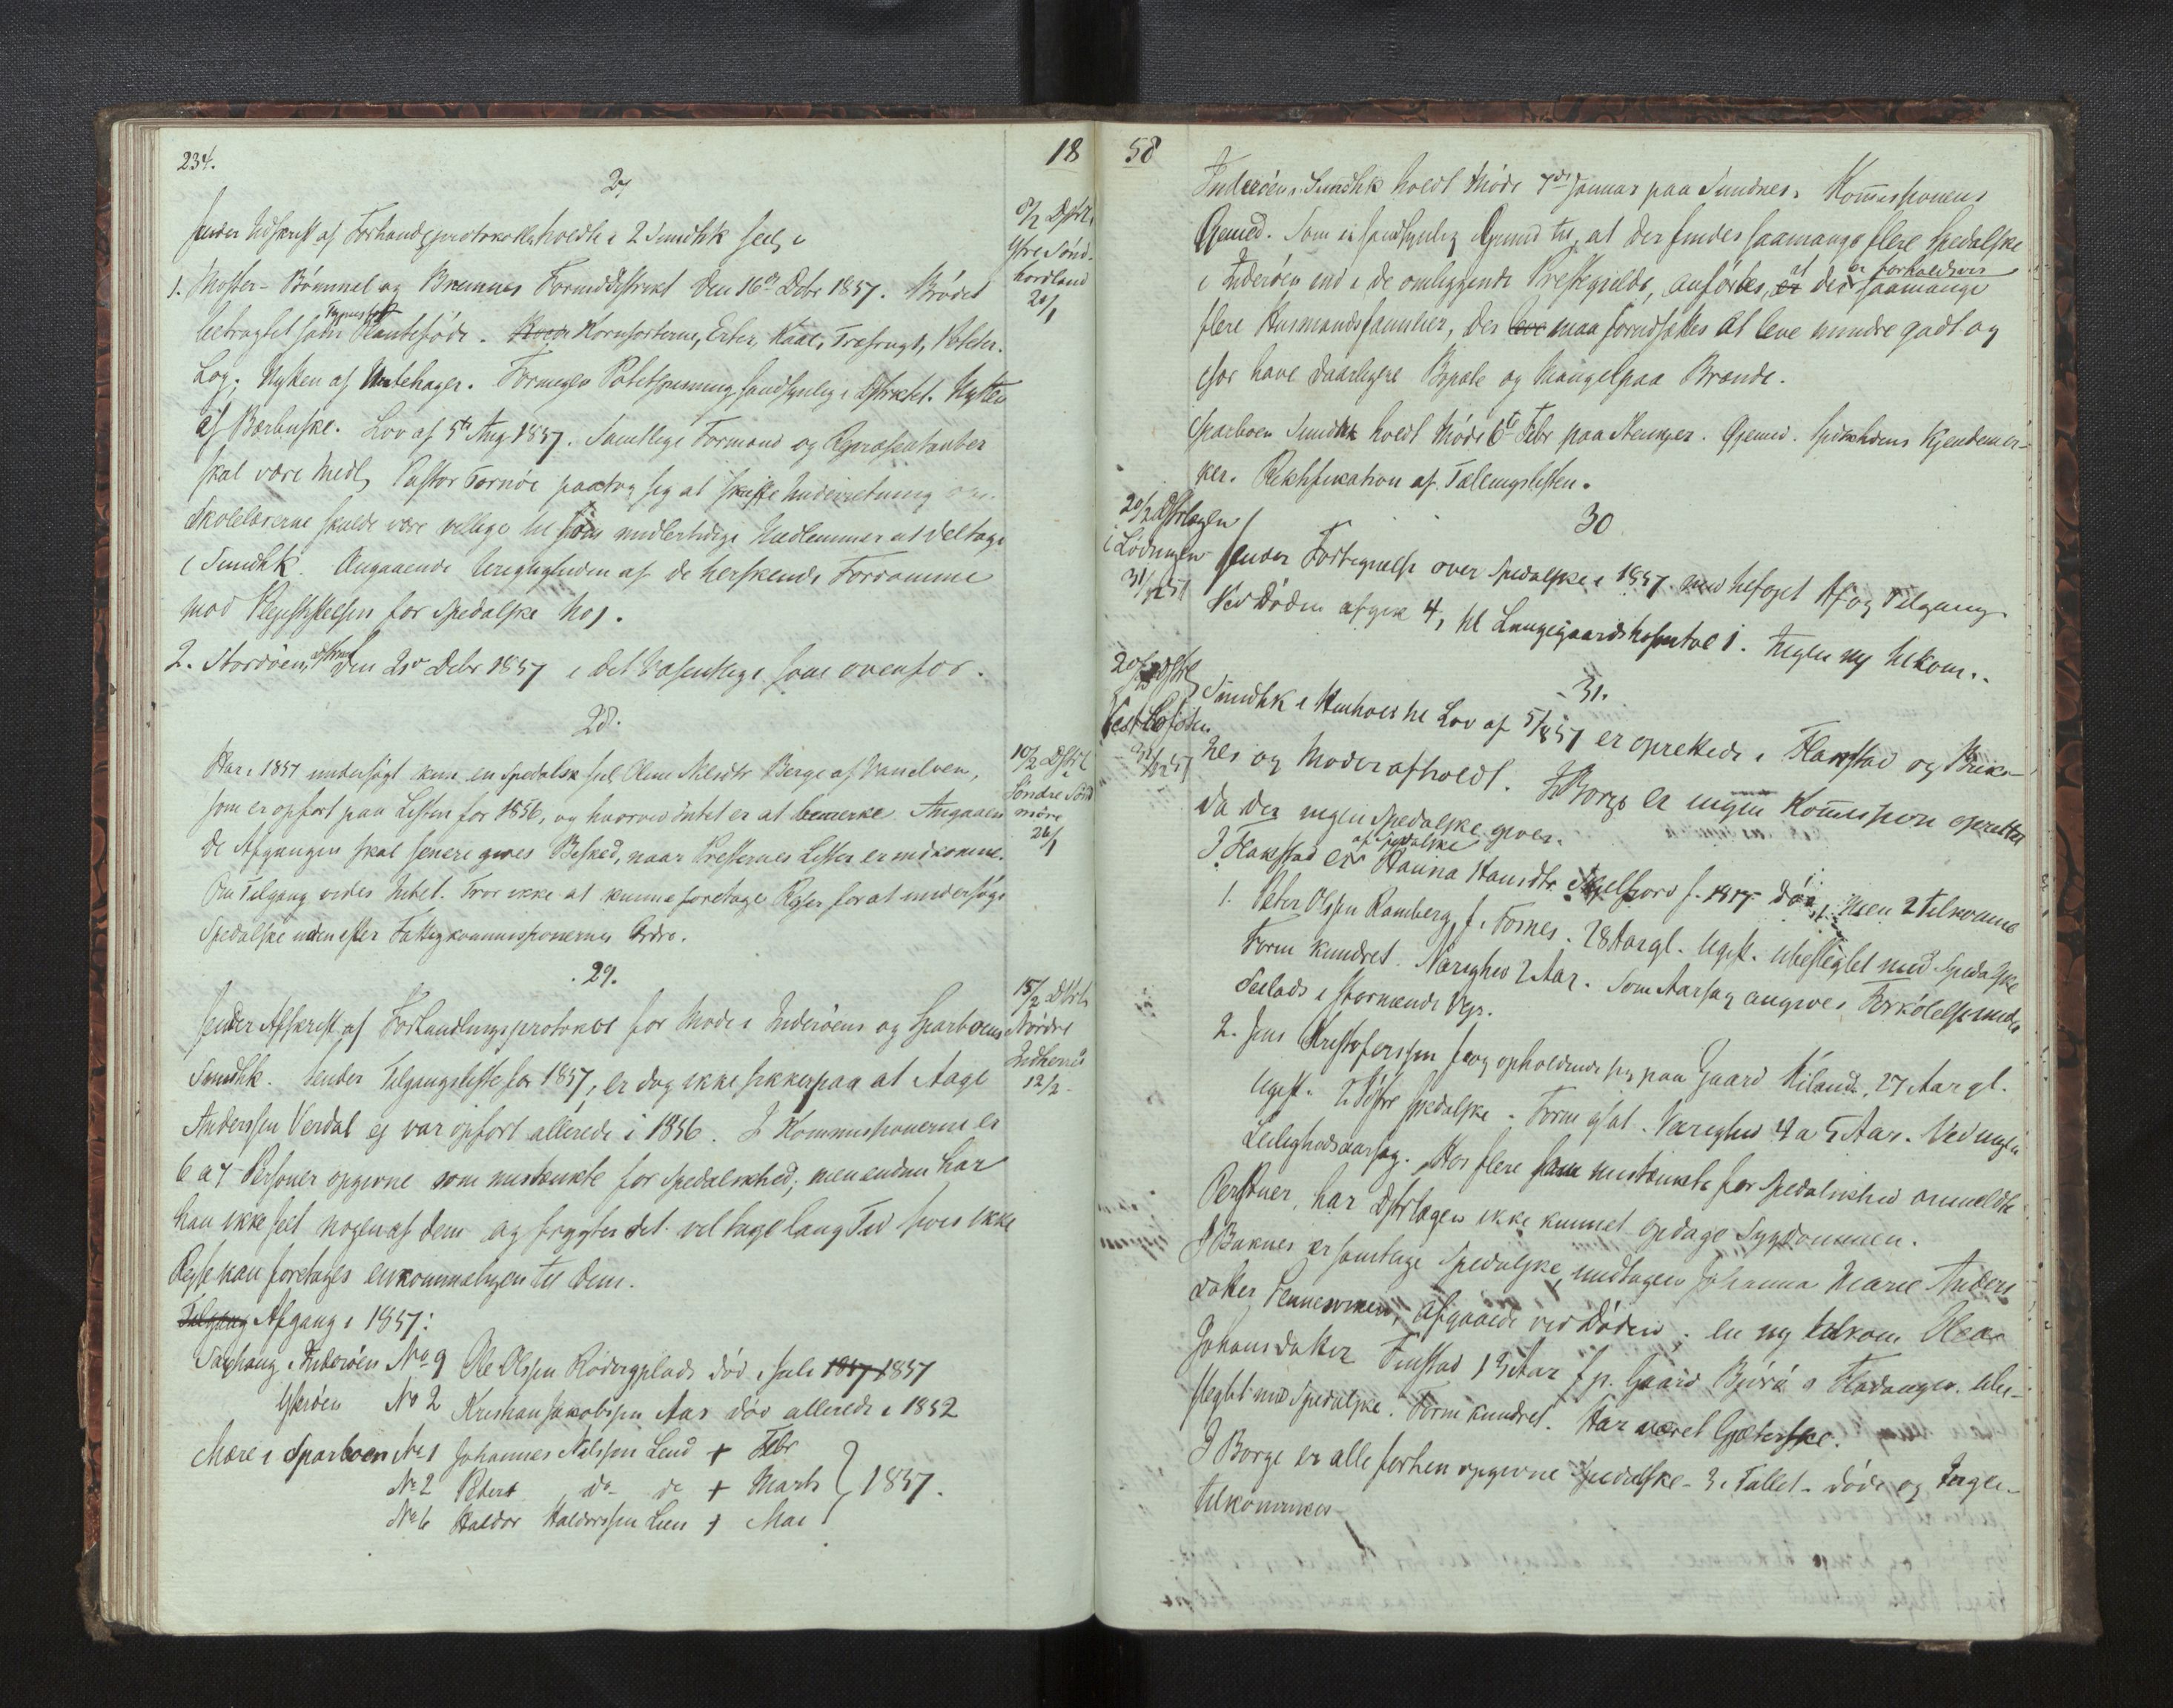 234.
18
27
Sender Udskrift af Forhandlsprotokoll, holdte i 2 Sundhk.
1. Moster-Bömmel og Bremnes Formdsdistrikt den 16de Debr 1857. Brödet
betragtet som Planteföde. Kornsorterne, Erter, Kaal, Træfrugt, Poteter.
Log; Nytten af Urtehager. Formegen Potetspisning sandsynlig i Distriktet. Nytten
af Bærbuske. Lov af 5te Aug 1857. Samtlige Formænd og Repræsentanter
skal være Medl, Pastor Fornöe paatog sig at skaffe Underretning om
Skolelærerne skulde være villige til som midlertidige Medlemmer at deltage
i Sundhk. Angaaende Urigtigheden af de herskende Fordomme
mod Plejestiftelsen for Spedalske No 1.
2. Stordöens den 21de Debr 1857 i det Væsentlige som ovenfor.
8/2 Dstrl.
Ytre Sönd-
hordland
20/1
28.
Har i 1857 undersögt kun en Spedalsk fnl Oline Nilsdtr Berge af Vanelven,
som er opfört paa Listen for 1856, og hvorved Intet er at bemerke. Angaaen
de Afgangen skal senere gives Besked, naar Presternes Lister er indkomne.
Om Tilgang vides Intet. Tror ikke at kunne foretage Rejser for at undersöge
Spedalske uden efter Fattigkommissionernes Ordre.
10/2 Dstrl
Söndre Sönd
möre
26/1
29.
Sender Afskrift af Forhandlingsprotokol for Möde i Inderöens og Sparboens
Sundhk. Sender Tilgangsliste for 1857, er dog ikke sikker paa at Aage
Anderssen Verdal ej var opfört allerede i 1856. I Kommissionerne er
6 a 7 Personer opgivne som mistænkte for Spedalskhed; men endnu har
han ikke seet nogen af dem og frygter det vil tage lang Tid hvis ikke
Rejse kan foretages enkommeligen til dem.
Tilgang Afgang i 1857:
Saxhaug i Inderöen No 9 Ole Olssen Rödergplads död i Juli 1857 1857
Ytteröen No 2 Kristian Jakobssen Aas död allerede i 1852
Mære i Sparboen No 1 Johannes Nilssen Lend + Febr
No 2 Peder do do + Marts } 1857.
No 6 Haldor Haldorssen Lien + Mai
15/2 Dstrl
Nordre
Indherred
12/2
58
Inderöens Sundhk holdt Möde 7de Januar paa Sundnes. Kommissionens
Gjemed. Som en sandsynlig Grund til, at der findes saamange flere Spedalske
i Inderöen end i de omliggende Prestegjelde, anförtes, at der er forholdsvis saamange
flere Husmandsfamilier, der leve maa forudsættes at leve mindre godt og
har have daarligere Bopæle og Mangel paa Brænde.
Sparboen Sundhk holdt Möde 6te Febr paa Stenkjer. Gjemed. Spedskhedens Kjendemer-
ker. Rektifikation af Tællingslisten.
30
20/2 Dstrlægen
i Lödingen
31/12 57
Sender Fortegnelse over Spedalske i 1857 med tilföjet Af og Tilgang.
Ved Döden afgik 4, til Lungegaardshospital 1. Ingen ny tilkom.
31.
20/2 Dstrl
Vest Lofoten
31/12 57
Sundhk i Henhold til Lov af 5/8 57 er oprettede i Flakstad og Buks-
nes og Möder afholdt. I Borge er ingen Kommission oprettet
da der ingen Spedalske gives.
I Flakstad er af Spedalske Hanna Hansdtr Skjelfjord f. 1815 död; men 2 tilkomne
1. Peter Olssen Ramberg, f. i Fornes. 28 Aar gl. Ugift. Ubeslegtet med Spedalske
Form kundret. Varighed 2 Aar. Som Aarsag angives Forkölelse under
Seilads i stormende Vejr.
2. Jens Kristofersson f. og opholdende sig paa Gaard Kilands, 27 Aar gl.
Ugift. 2 Söstre spedalske. Form glat. Varighed 4 a 5 Aar. Ved ingen
Leilighedsaarsag. Hos flere som mistænkte for Spedalskhed anmeldte
Personer, har Dstrlægen ikke kunnet opdage Sygdommen.
I Buknes er samtlige Spedalske, undtagen Johanna Marie Anders
datter Pennesviken, afgaaede ved Döden; en ny tilkom Olea
Johansdatter Finstad 13 Aar f. p. Gaard Björu i Fladanger. Ube-
slegtet med Spedalske. Form kundret. Har været Gjæterske.
I Borge er alle forhen opgivne Spedalske - 3 i Tallet - döde og Ingen
tilkommet